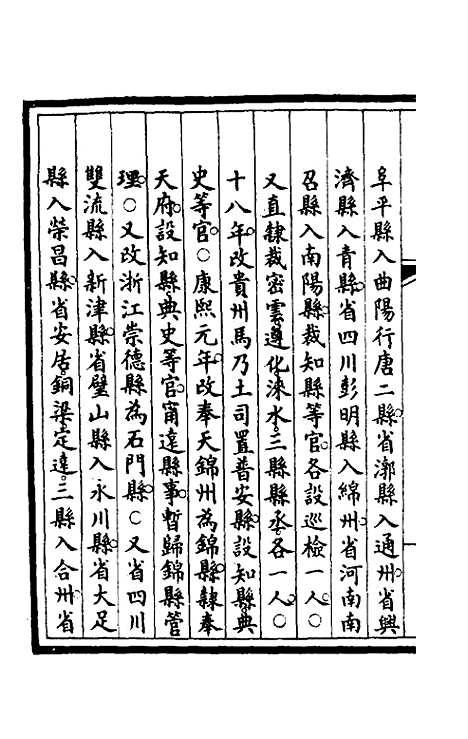 阜平縣入曲陽行唐二縣省漷縣入通州省興
濟縣入青縣省四川彭明縣入綿州省河南南
召縣入南陽縣裁知縣等官各設巡檢一人○
又直隸裁密雲遵化淶水三縣縣丞各一人○
十八年改貴州馬乃土司置普安縣設知縣典
史等官○康熙元年改奉天錦州為錦縣隸奉
天府設知縣典史等官甯遠縣事暫歸錦縣管
理○又改浙江崇德縣為石門縣○又省四川
雙流縣入新津縣省璧山縣入永川縣省大足
縣入榮昌縣省安居銅梁定遠三縣入合州省